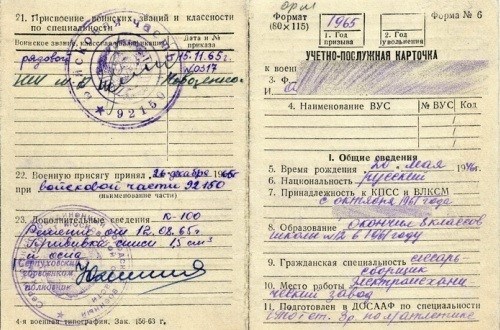 21. Присвоение воинских званий и классности
по специальности
Воинское звание, классная квалификация
Дата и №
приказа
рядовой
15.11.65г.
№0317
НШ
92150
22. Военную присягу принял 26 декабря 1965г.
при войсковой части 92150
(наименование части)
23. Дополнительные сведения К-100
Решение от 12.08.65г
Прививка смеси 15 см³
и оспа
Серпуховский
горвоенком
полковник
4-я военная типография. Зак. 156-63 г.
Формат
(80×115)
1965
1. Год
призыва
2. Год
увольнения
Форма № 6
УЧЕТНО-ПОСЛУЖНАЯ КАРТОЧКА
К военн
3. Ф.
И.
4. Наименование ВУС
№ ВУС
Код
I. Общие сведения
5. Время рождения 20 мая 1946г.
6. Национальность русский
7. Принадлежность к КПСС и ВЛКСМ
с октября 1961 года
8. Образование окончил 8 классов
школы №12 в 1961 году
9. Гражданская специальность слесарь
сборщик
10. Место работы
ческий завод
11. Подготовлен в ДОСААФ по специальности